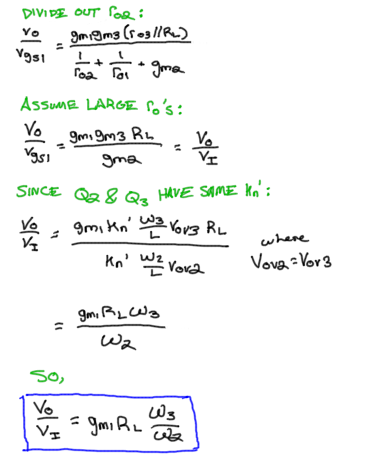 DIVIDE OUT ro2:
vo/vgs1 = gm1gm3(ro3//RL) / (1/ro2 + 1/ro1 + gm2)
ASSUME LARGE ro's:
Vo/Vgs1 = gm1gm3 RL / gm2 = Vo/VI
SINCE Q2 & Q3 HAVE SAME kn':
Vo/VI = gm1 Kn' ω3/L Vov3 RL / Kn' ω2/L Vov2 where Vov2=Vov3
= gm1RLω3 / ω2
SO,
Vo/VI = gm1RL ω3/ω2